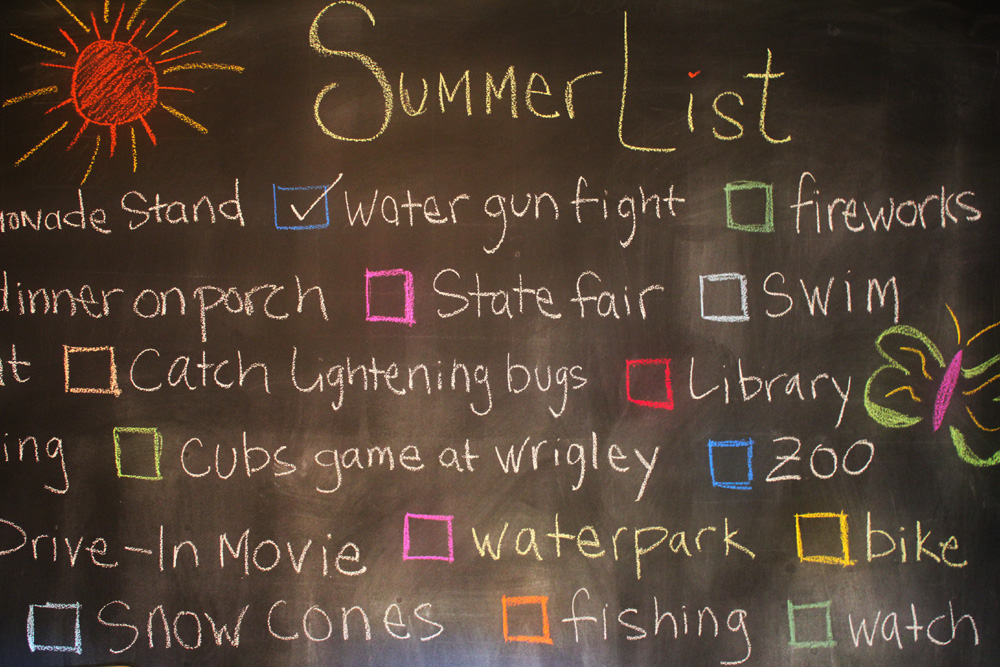 Summer List
monade Stand water gun fight fireworks
dinner on porch State fair Swim
Catch Lightening bugs Library
ing Cubs game at Wrigley ZOO
Drive-In Movie waterpark bike
Snow Cones fishing watch